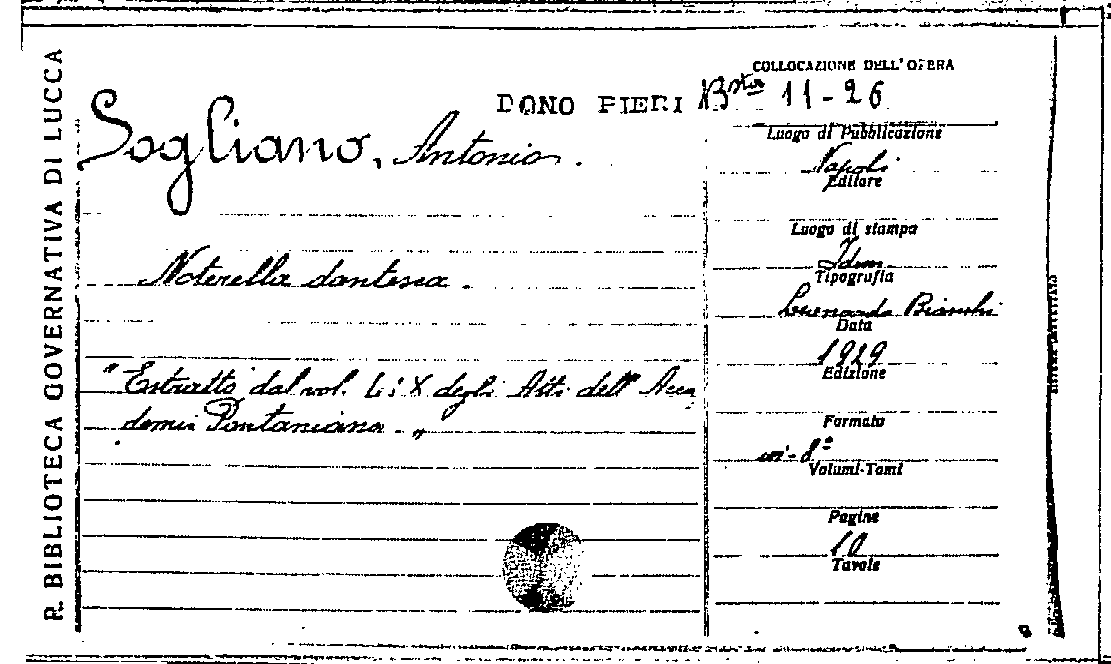 R. BIBLIOTECA GOVERNATIVA DI LUCCA
COLLOCAZIONE DELL'OPERA
DONO PIERI Bsta 11-26
Sogliano, Antonio.
Luogo di Pubblicazione
Napoli
Editore
Luogo di stampa
Noterella dantesca.
Idem
Tipografia
Leonardo Bianchi
Data
1929
Edizione
"Estratto dal vol. LIX degli Atti dell'Acca
demia Pontaniana."
Formato
in-8°
Volumi-Tomi
Pagine
10
Tavole